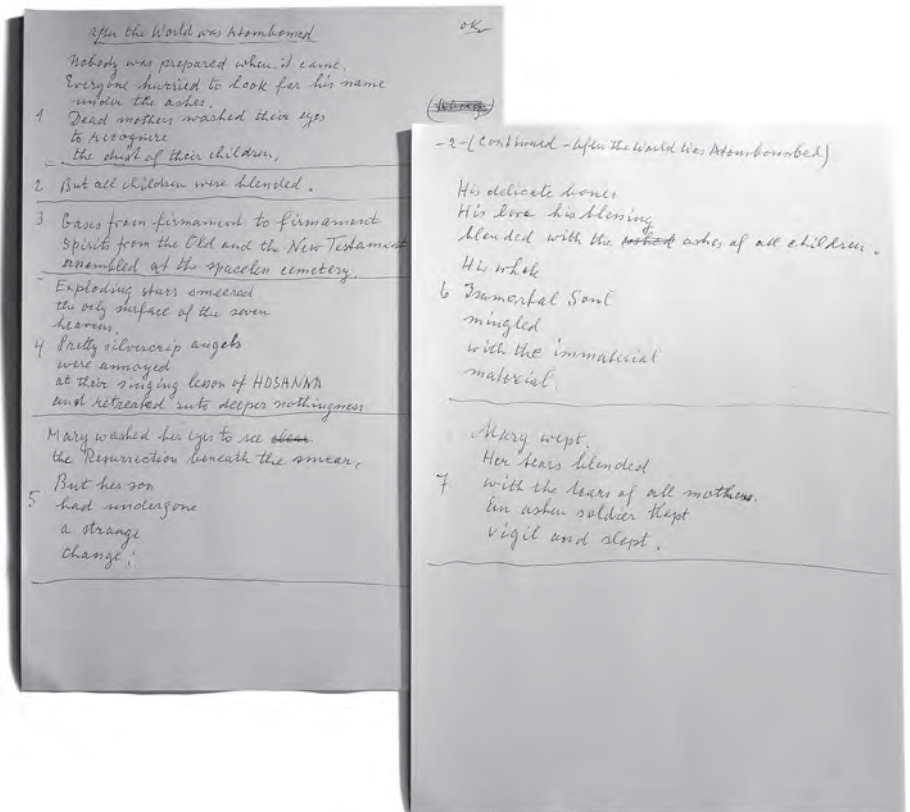 After the World was Atombombed
OK
Nobody was prepared when it came.
Everyone hurried to look for his name
under the ashes.
1 Dead mothers washed their eyes
to recognize
the dust of their children,
2 But all children were blended.
3 Gases from firmament to firmament
Spirits from the Old and the New Testament
assembled at the spaceless cemetery.
Exploding stars smeared
the oily surface of the seven
heavens.
4 Pretty silvercrip angels
were annoyed
at their singing lesson of HOSANNA
and retreated into deeper nothingness
Mary washed her eyes to see clear
the Resurrection beneath the smear,
But her son
5 had undergone
a strange
change;
-2-(Continued - After the World Was Atombombed)
His delicate bones
His love his blessing
blended with the ashes of all children.
His whole
6 Immortal Soul
mingled
with the immaterial
material.
Mary wept.
Her tears blended
7 with the tears of all mothers.
An ashen soldier kept
vigil and slept.